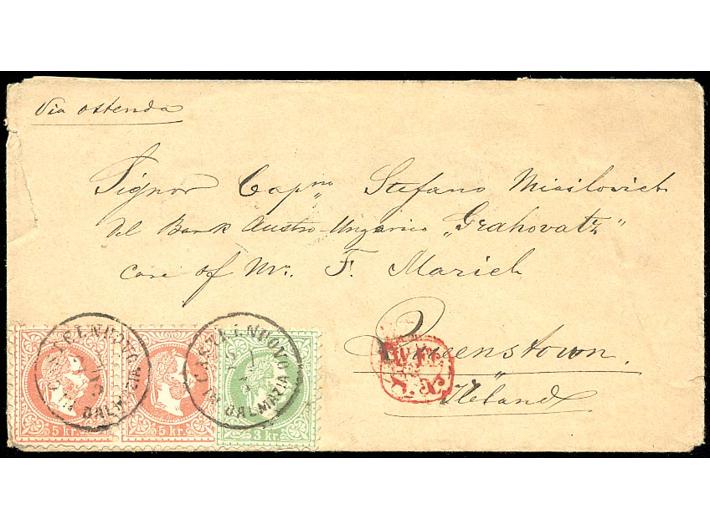 Via ostenda
Signor Cap.no Stefano Misilovich
Del Bark Austro-Ungarico „Grahovatz"
care of Mr. F. Marich
Queenstown.
Ireland
CASTELNUOVO
IN DALMAZIA
CASTELNUOVO
IN DALMAZIA
5 kr. 5 kr. 3 kr.